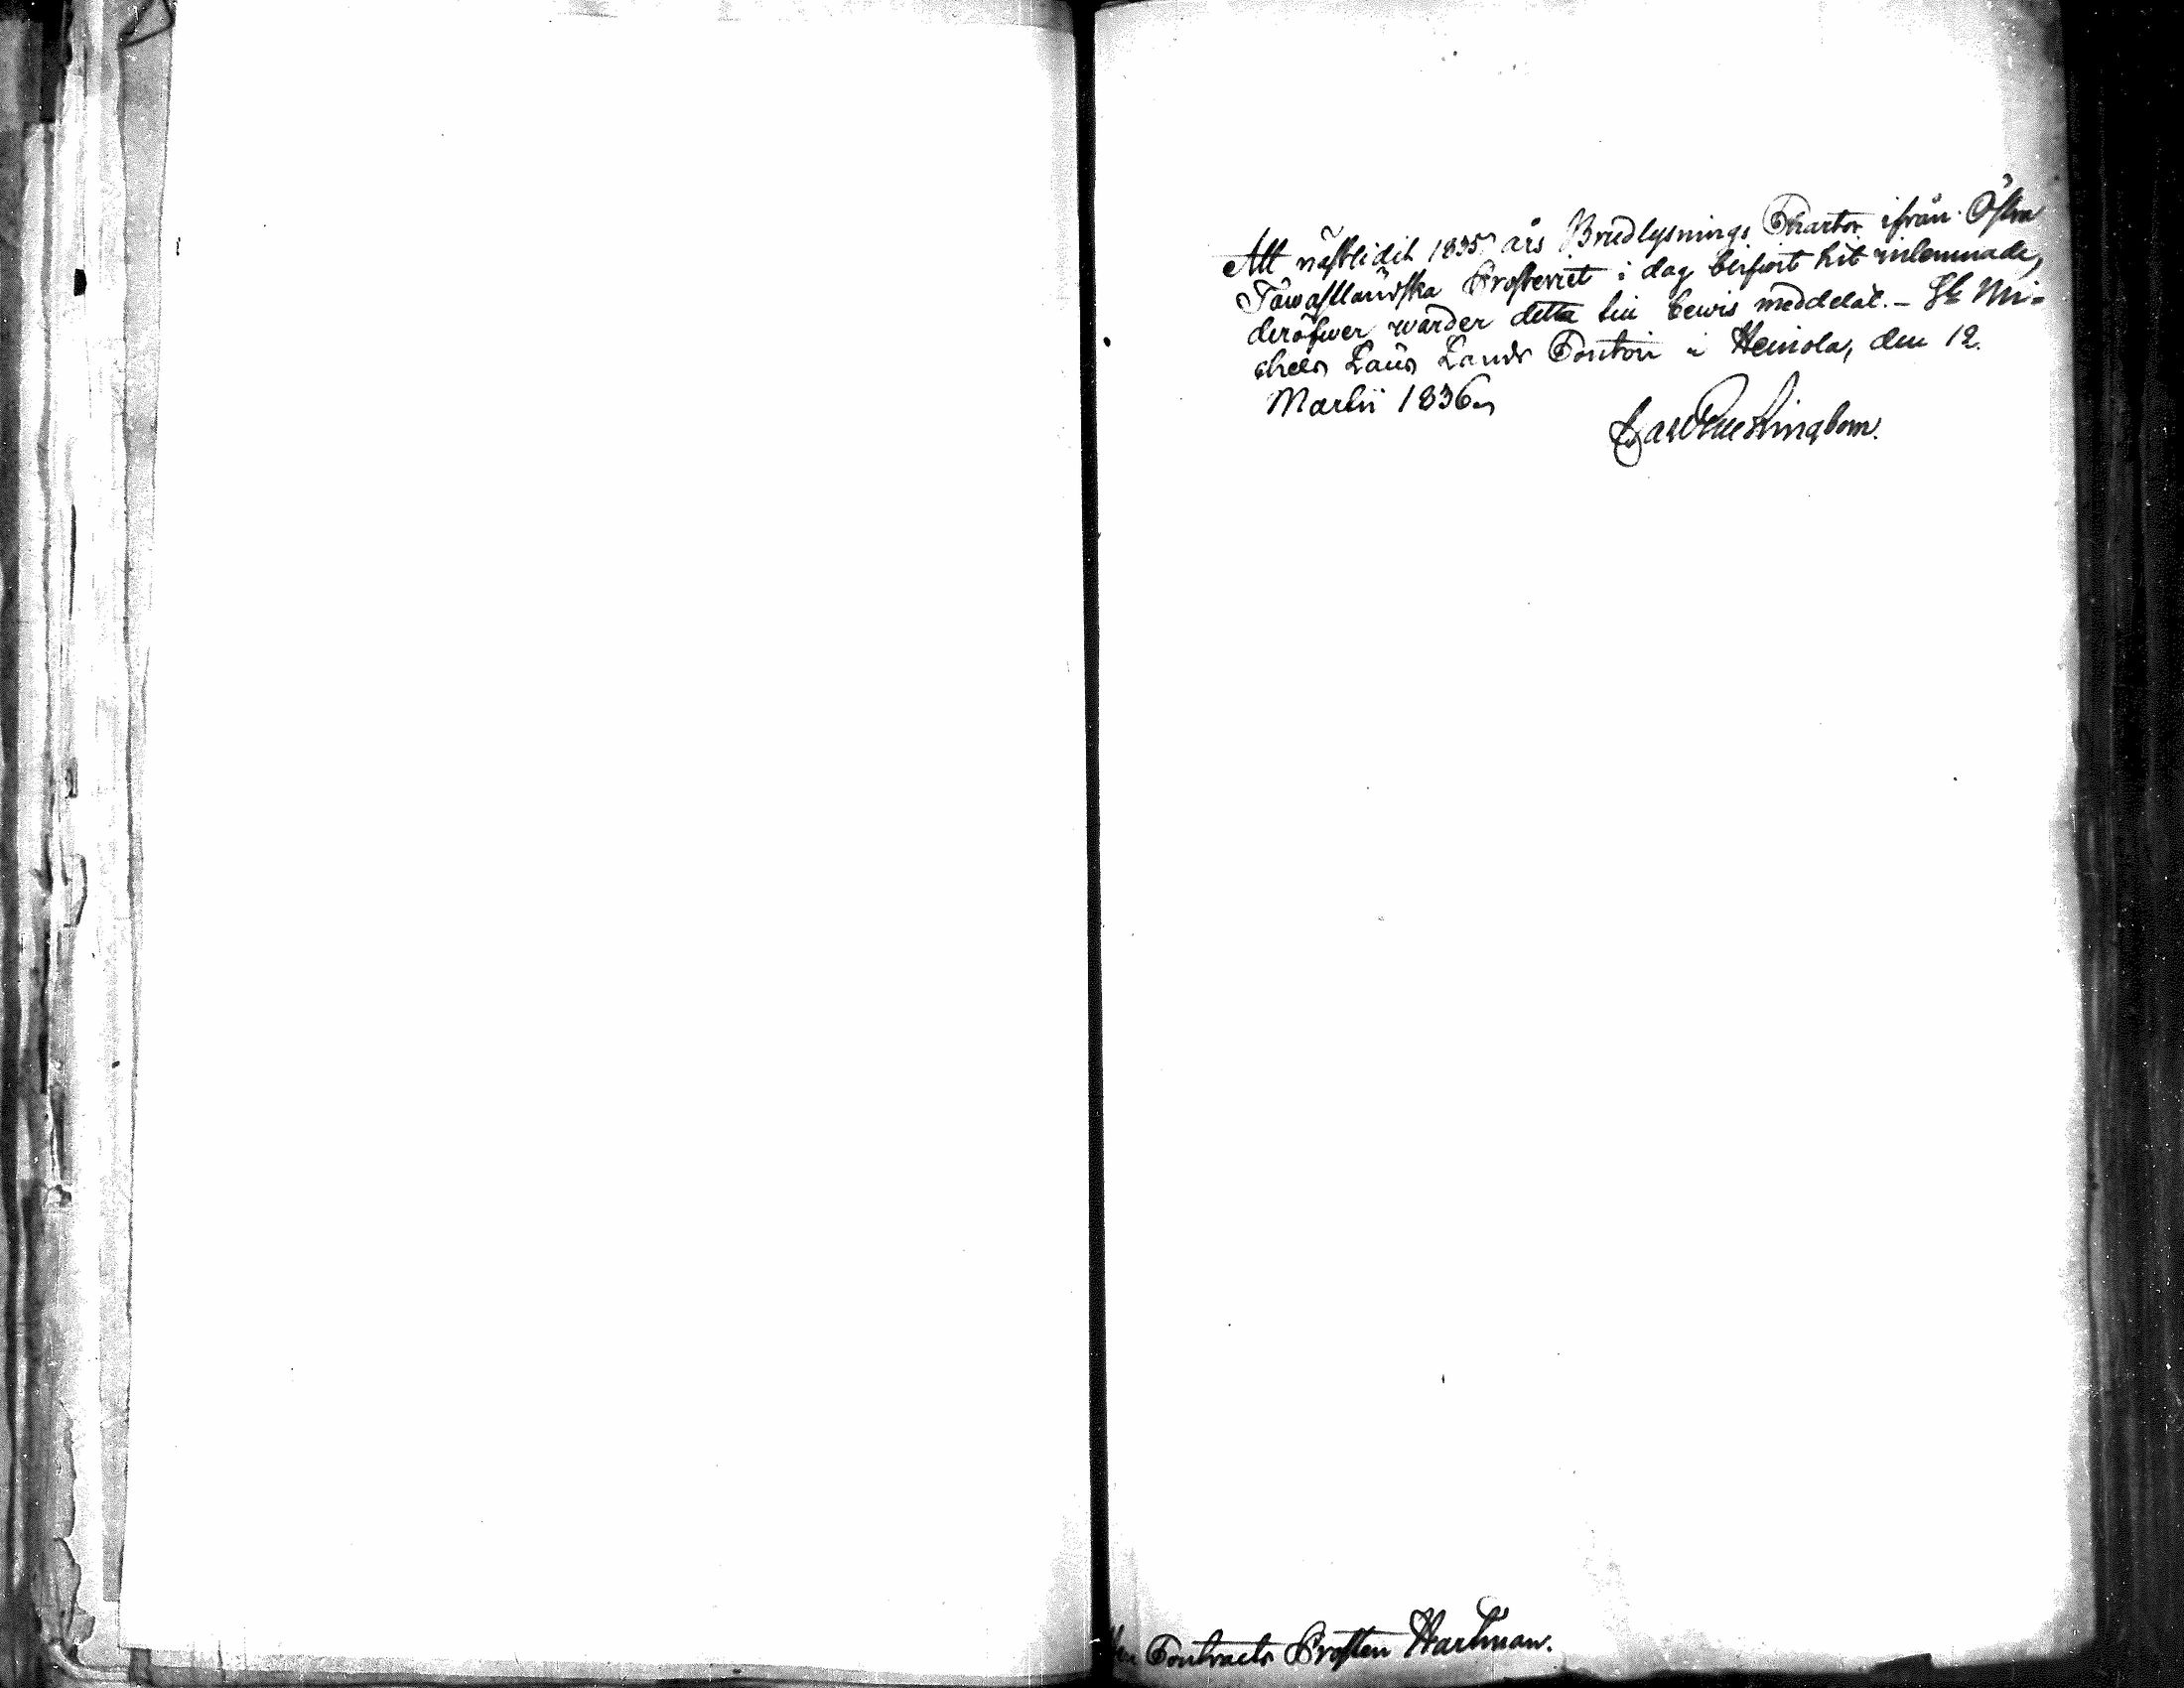 Att nästledit 1835 års Brudlysnings Chartor ifrån Östra
Tawastländska Prosteriet i dag blifwit hit inlemnade,
deröfwer warder detta till bewis meddelat. – St Mi=
chels Läns Lands Contoir i Heinola, den 12.
Martii 1836.
Lingbom.
Contracts Prosten Hartman.